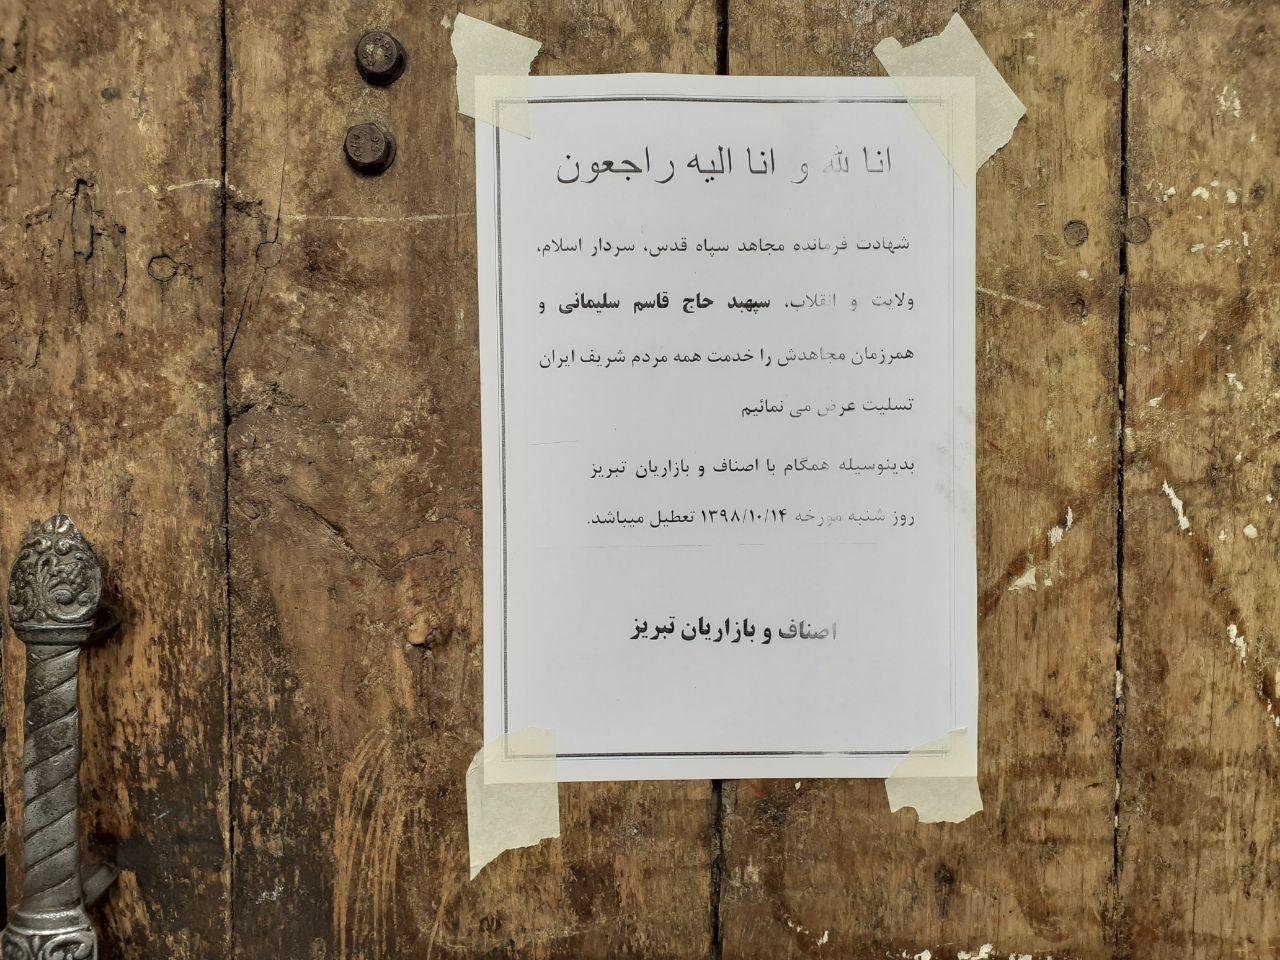 انا لله و انا الیه راجعون
شهادت فرمانده مجاهد سپاه قدس، سردار اسلام،
ولایت و انقلاب، سپهبد حاج قاسم سلیمانی و
همرزمان مجاهدش را خدمت همه مردم شریف ایران
تسلیت عرض می نمائیم
بدینوسیله همگام با اصناف و بازاریان تبریز
روز شنبه مورخه ۱۳۹۸/۱۰/۱۴ تعطیل میباشد.
اصناف و بازاریان تبریز